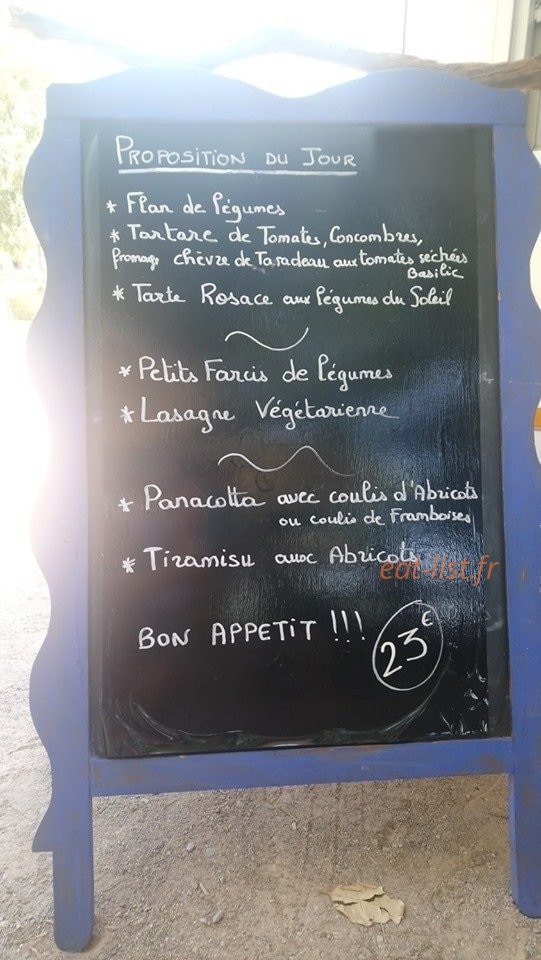 PROPOSITION DU JOUR
* Flan de Légumes
* Tartare de Tomates, Concombres,
fromage chèvre de Taradeau aux tomates séchées
Basilic
* Tarte Rosace aux Légumes du Soleil
* Petits Farcis de Légumes
* Lasagne Végétarienne
* Panacotta avec coulis d'Abricots
ou coulis de Framboises
* Tiramisu aux Abricots
eat-list.fr
BON APPETIT !!!
23€